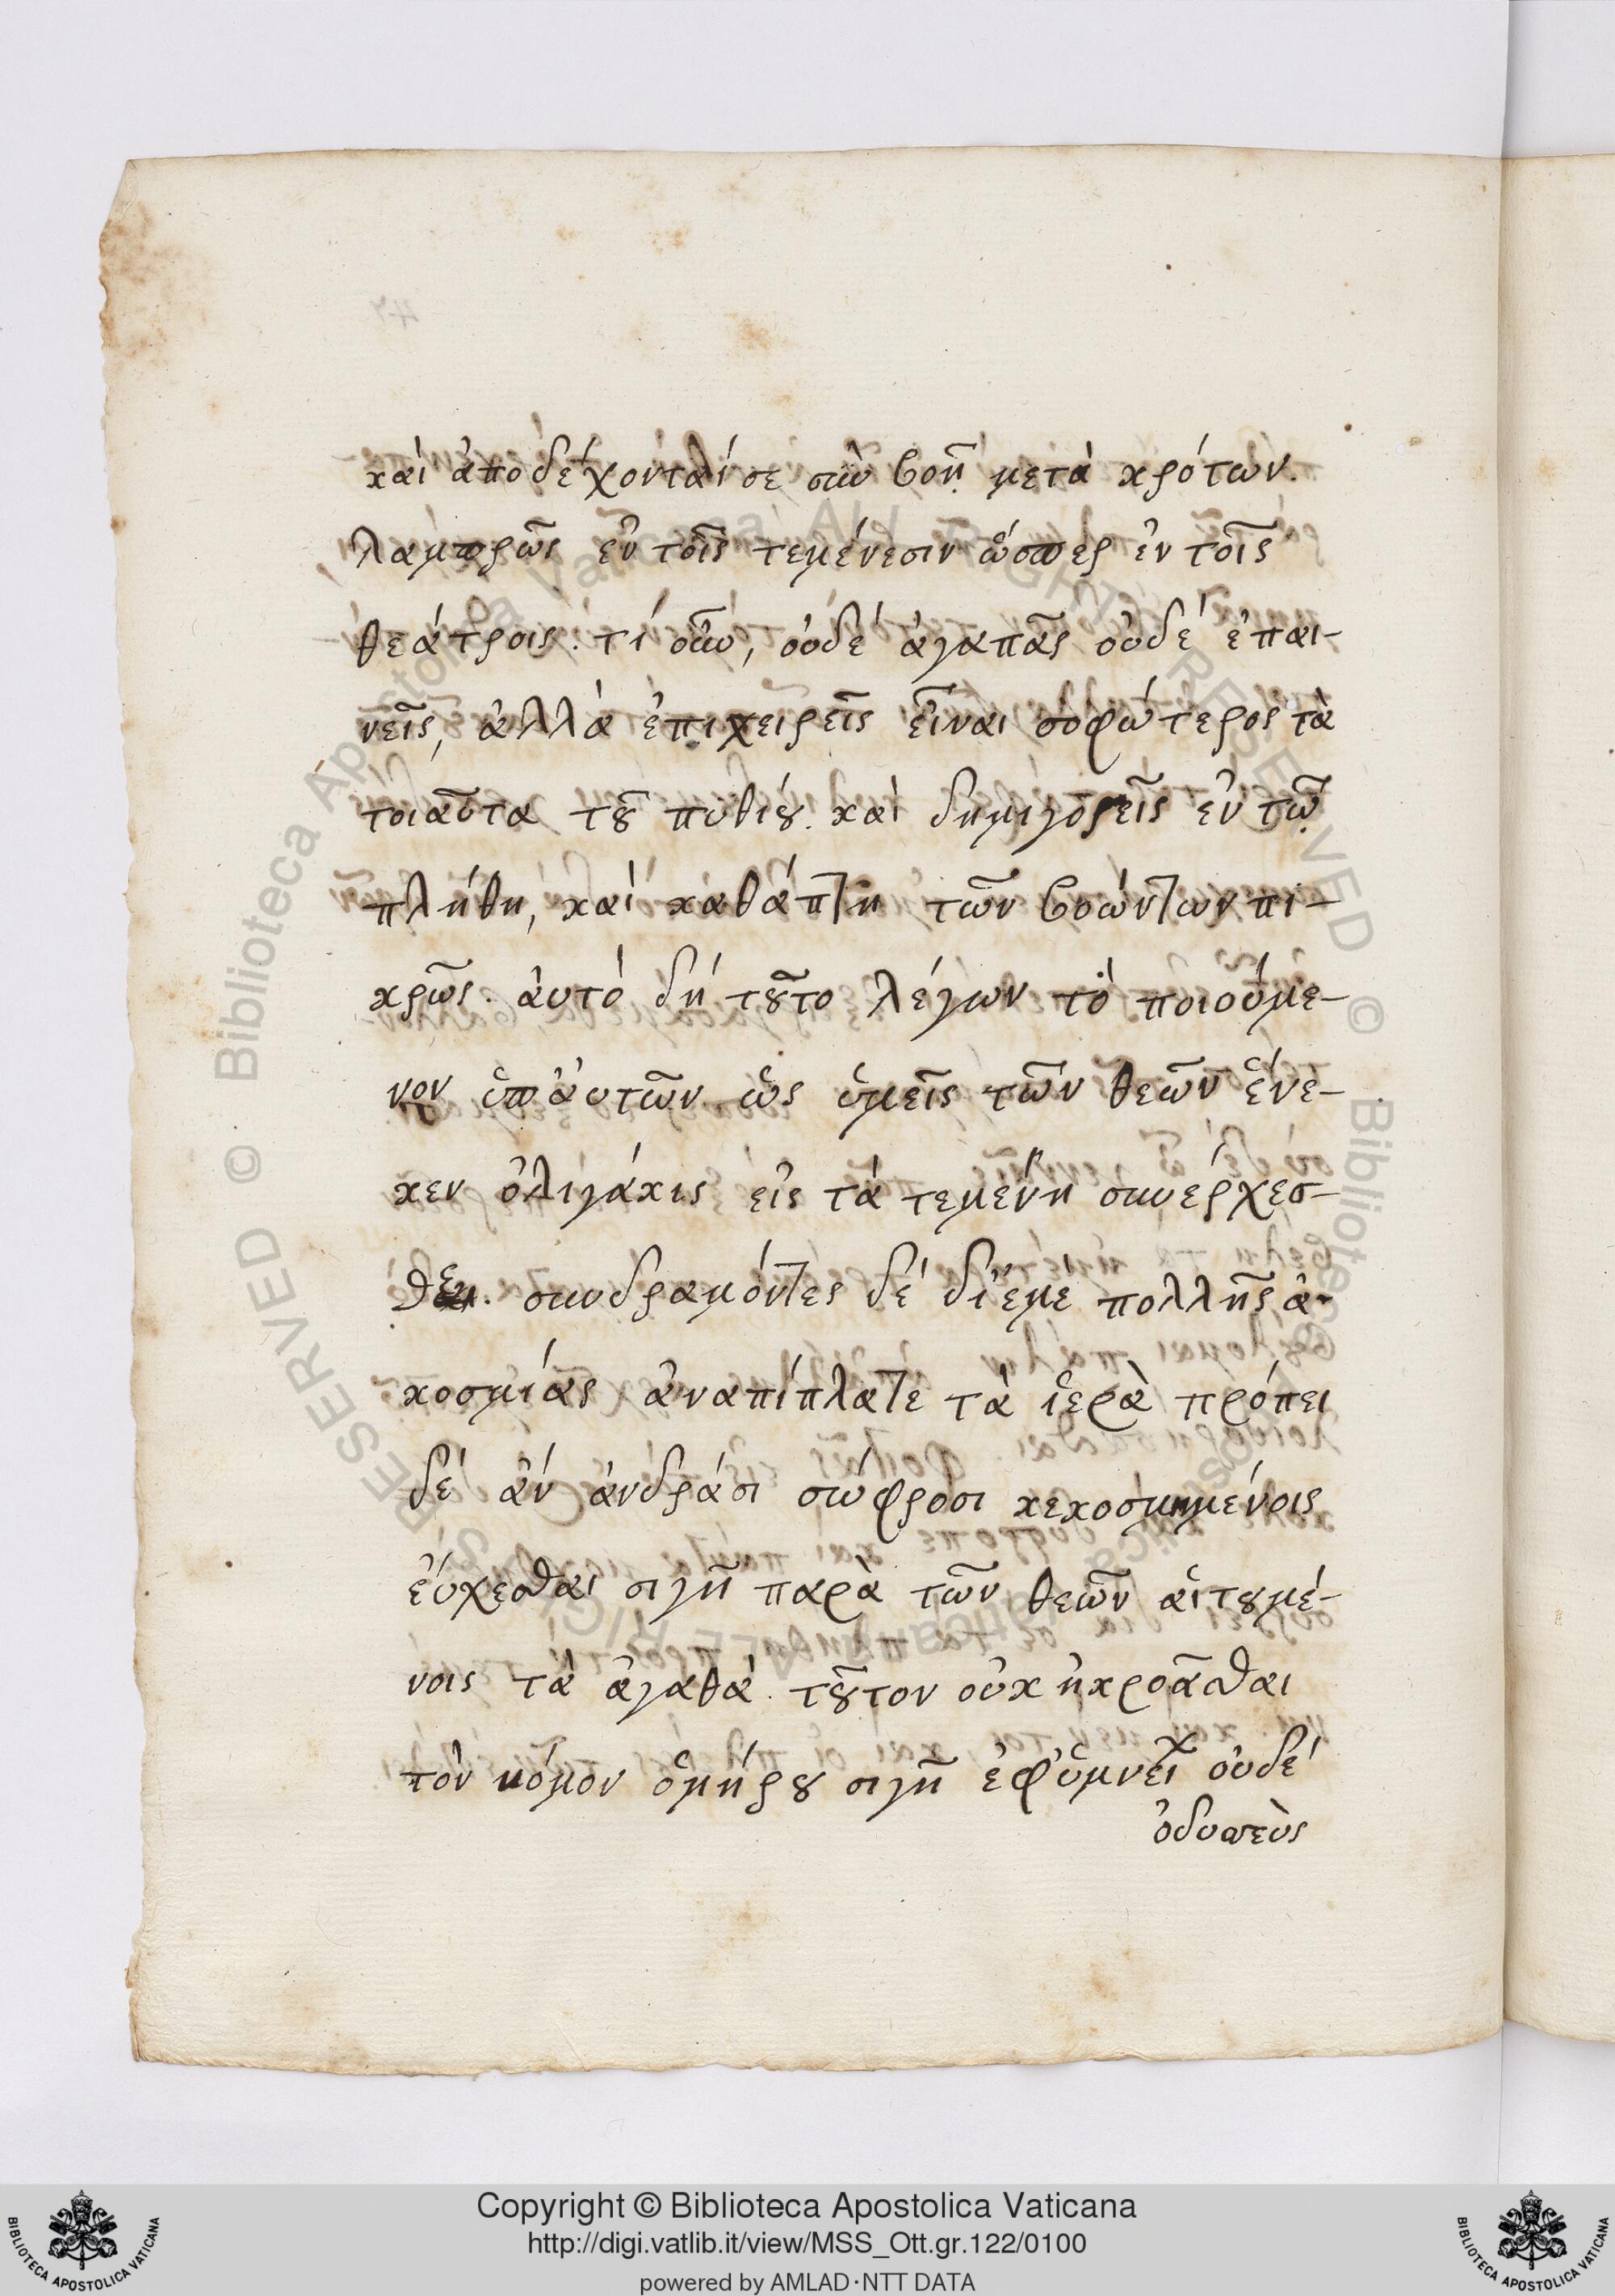 καὶ ἀποδέχονταί σε σὺν βοῇ μετὰ κρότων.
λαμπρῶς ἐν τοῖς τεμένεσιν ὥσπερ ἐν τοῖς
θεάτροις. τί οὖν, οὐδὲ ἀγαπᾶς οὐδὲ ἐπαι-
νεῖς, ἀλλὰ ἐπιχειρεῖς εἶναι σοφώτερος τὰ
τοιαῦτα τοῦ πυθίου. καὶ δημιγορεῖς ἐν τῶ
πλήθη, καὶ καθάπτη τῶν βοώντων πι-
κρῶς. ἀυτὸ δὴ τοῦτο λέγων τὸ ποιούμε-
νον ὑπ ἀυτῶν ὡς ὑμεῖς τῶν θεῶν ἕνε-
κεν ὀλιγάκις εἰς τὰ τεμένη συνέρχεσ-
θε. συνδραμόντες δέ δι ἐμὲ πολλῆς ἀ-
κοσμίας ἀναπίπλατε τὰ ἱερὰ πρόπει
δέ ἀν ἀνδράσι σώφροσι κεκοσμημένοις
ἐύχεσθαι σιγῆ παρὰ τῶν θεῶν ἀιτουμέ-
νοις τὰ ἀγαθὰ. τοῦτον οὐκ ἠκροᾶσθαι
τὸν νόμον ὁμήρου σιγῆ ἐφ ὑμνεῖ οὐδέ
ὀδυσσεὺς
Copyright © Biblioteca Apostolica Vaticana
http://digi.vatlib.it/view/MSS_Ott.gr.122/0100
powered by AMLAD·NTT DATA